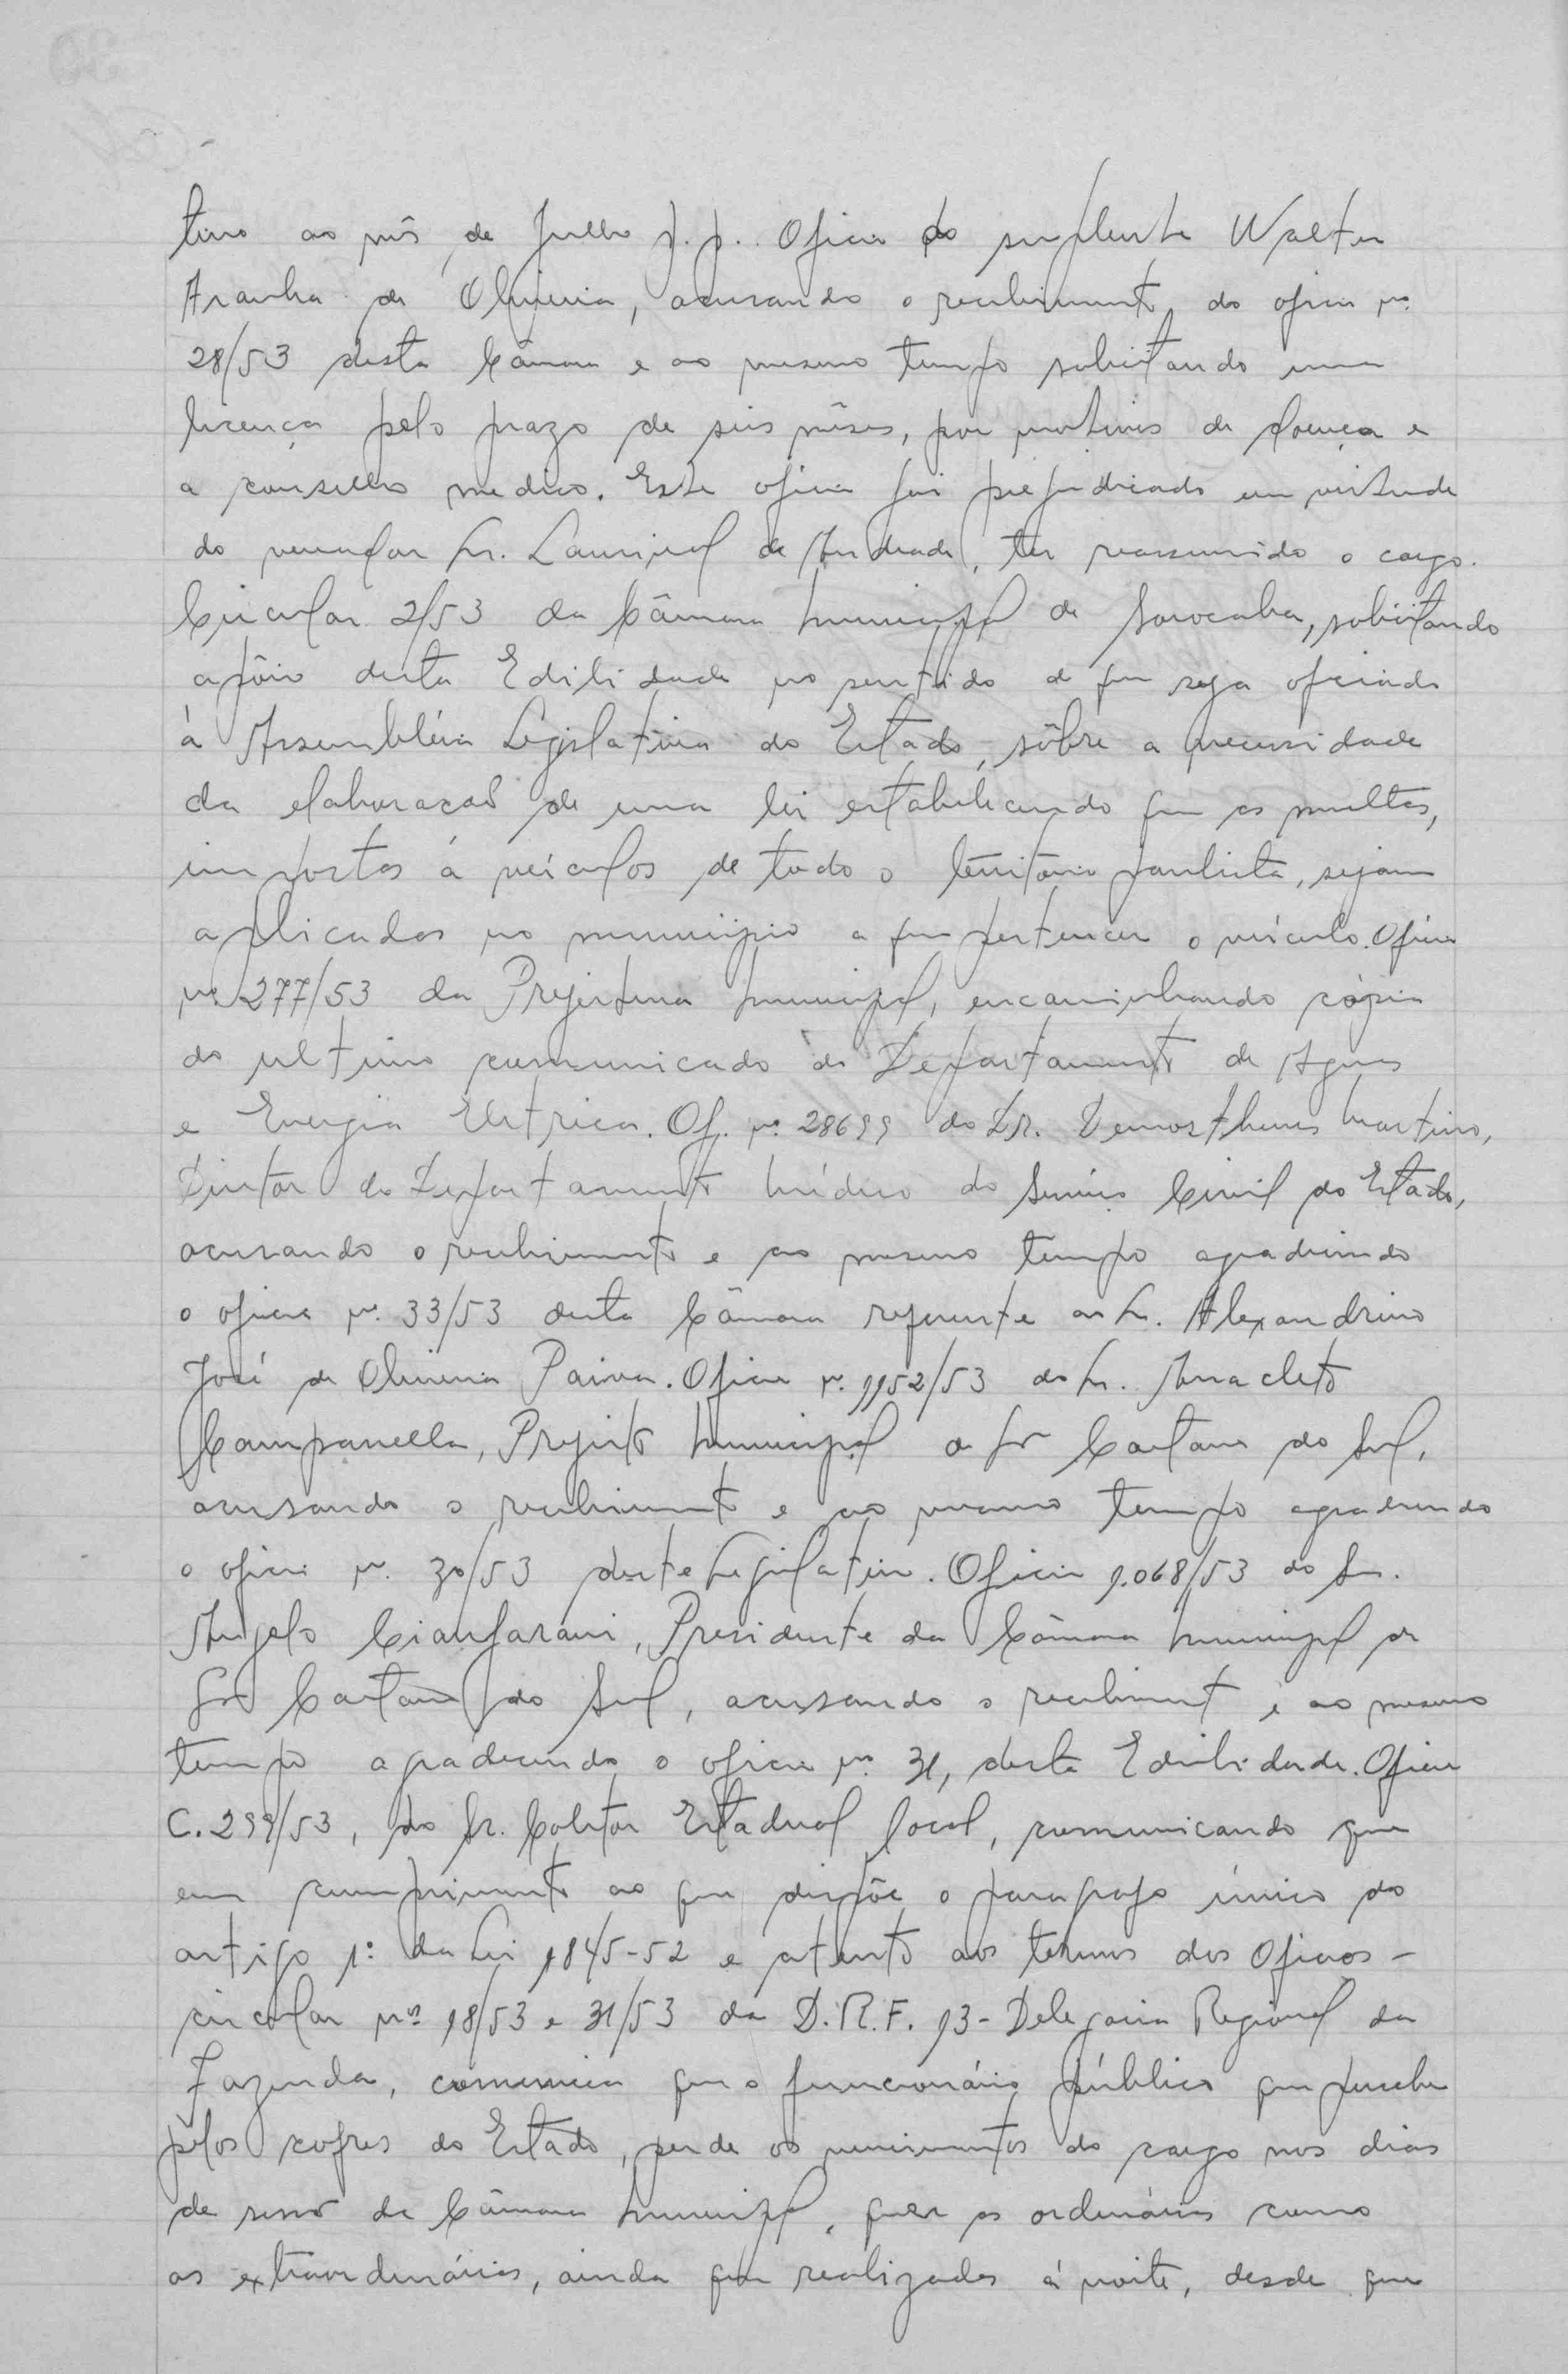 tivo ao mês de Julho p.p. Oficio do suplente Walter
Aranha de Oliveira, acusando o recebimento do oficio nº
28/53 desta Câmara e ao mesmo tempo solicitando uma
licença pelo prazo de seis mêses, por motivos de doença e
a conselho medico. Este oficio foi prejudicado em virtude
do vereador Sr. Lourival de Andrade, ter reassumido o cargo.
Circular 2/53 da Câmara Municipal de Sorocaba, solicitando
apôio desta Edilidade no sentido de que seja oficiado
á Assembléia Legislativa do Estado, sôbre a necessidade
da elaboração de uma lei estabelecendo que as multas,
impostas á veículos de todo o território paulista, sejam
aplicadas no município a que pertencer o veículo. Oficio
nº 277/53 da Prefeitura Municipal, encaminhando cópia
do ultimo comunicado do Departamento de Aguas
e Energia Eletrica. Of. nº 28699 do Dr. Demosthenes Martins,
Diretor do Departamento Médico do Serviço Civil do Estado,
acusando o recebimento e ao mesmo tempo agradecendo
o oficio nº 33/53 desta Câmara referente ao Sr. Alexandrino
José de Oliveira Paiva. Oficio nº 1152/53 do Sr. Anacleto
Campanella, Prefeito Municipal de São Caetano do Sul,
acusando o recebimento e ao mesmo tempo agradecendo
o oficio nº 30/53 deste Legislativo. Oficio 1.068/53 do Sr.
Angelo Cianfarani, Presidente da Câmara Municipal de
São Caetano do Sul, acusando o recebimento e ao mesmo
tempo agradecendo o oficio nº 31, desta Edilidade. Oficio
C. 299/53, do Sr. Coletor Estadual local, comunicando que
em cumprimento ao que dispõe o paragrafo único do
artigo 1º da Lei 1845-52 e atento aos termos dos Oficios -
circular nºs 18/53 e 31/53 da D.R.F. 13 - Delegacia Regional da
Fazenda, comunica que o funcionário público que percebe
pelos cofres do Estado, perde os vencimentos do cargo nos dias
de sessão da Câmara Municipal, quer as ordinárias como
as extraordinárias, ainda que realizadas á noite, desde que